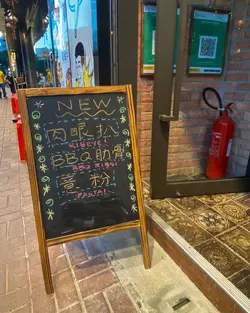 NEW
肉眼扒
RIBEYE!
BBQ肋骨
BBQ RIBS!
意粉
PASTA!